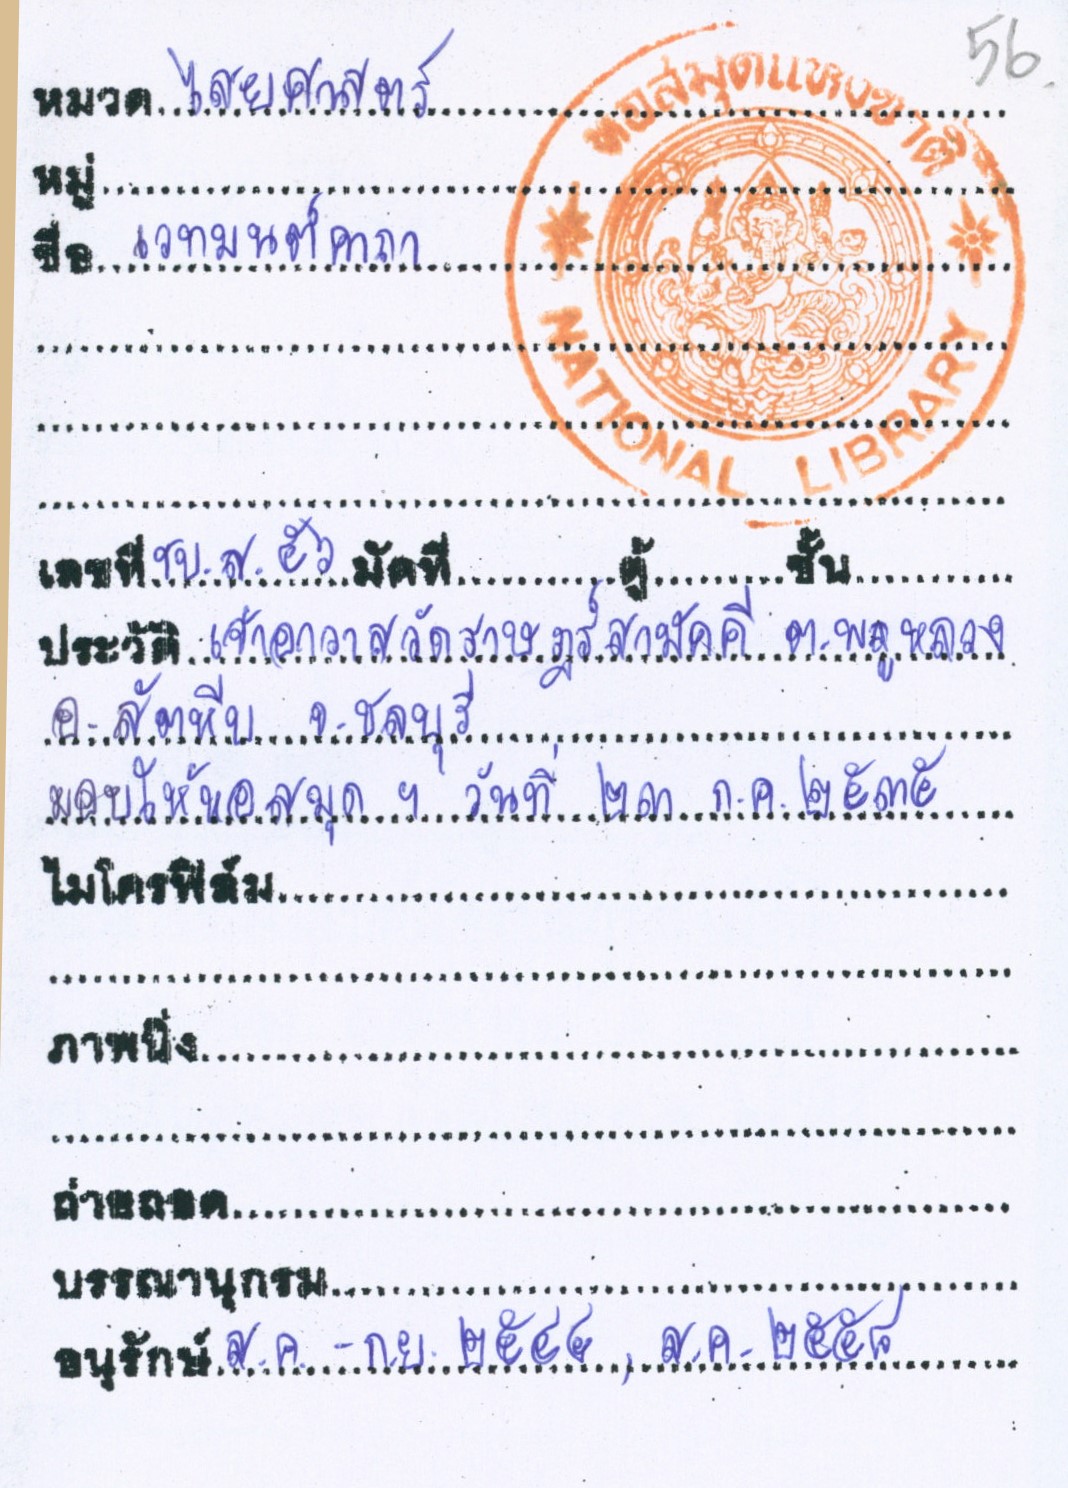 56.
หอสมุดแห่งชาติ
NATIONAL LIBRARY
หมวด ไสยศาสตร์
หมู่
ชื่อ เวทมนต์คาถา
เลขที่ ชบ.ส. ๕๖ มัดที่ ตู้ ชั้น
ประวัติ เจ้าอาวาสวัดราษฎร์สามัคคี ต.พลูหลวง
อ. สัตหีบ จ. ชลบุรี
มอบให้หอสมุด ฯ วันที่ ๒๓ ก.ค. ๒๕๓๕
ไมโครฟิล์ม
ภาพนิ่ง
ถ่ายถอด
บรรณานุกรม
อนุรักษ์ ส.ค. - ก.ย. ๒๕๔๔, ส.ค. ๒๕๕๘